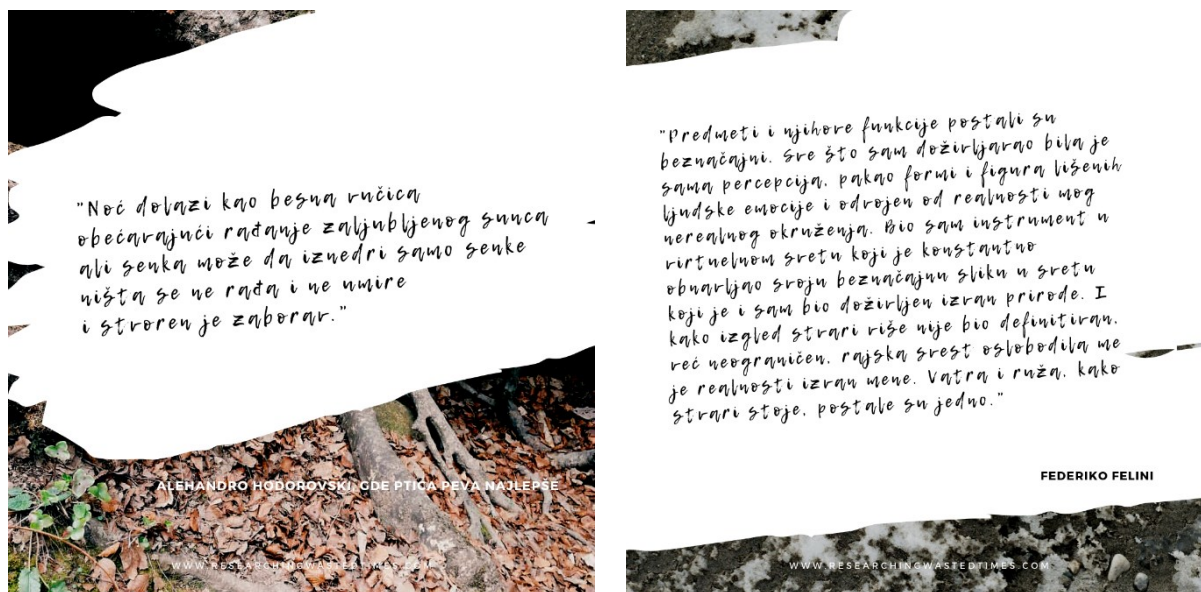 "Noć dolazi kao besna vučica
obećavajući rađanje zaljubljenog sunca
ali senka može da iznedri samo senke
ništa se ne rađa i ne umire
i stvoren je zaborav."
ALEHANDRO HODOROVSKI, GDE PTICA PEVA NAJLEPŠE
WWW.RESEARCHINGWASTEDTIMES.COM
"Predmeti i njihove funkcije postali su
beznačajni. Sve što sam doživljavao bila je
sama percepcija, pakao formi i figura lišenih
ljudske emocije i odvojen od realnosti mog
nerealnog okruženja. Bio sam instrument u
virtuelnom svetu koji je konstantno
obnavljao svoju beznačajnu sliku u svetu
koji je i sam bio doživljen izvan prirode. I
kako izgled stvari više nije bio definitivan,
već neograničen, rajska svest oslobodila me
je realnosti izvan mene. Vatra i ruža, kako
stvari stoje, postale su jedno."
FEDERIKO FELINI
WWW.RESEARCHINGWASTEDTIMES.COM